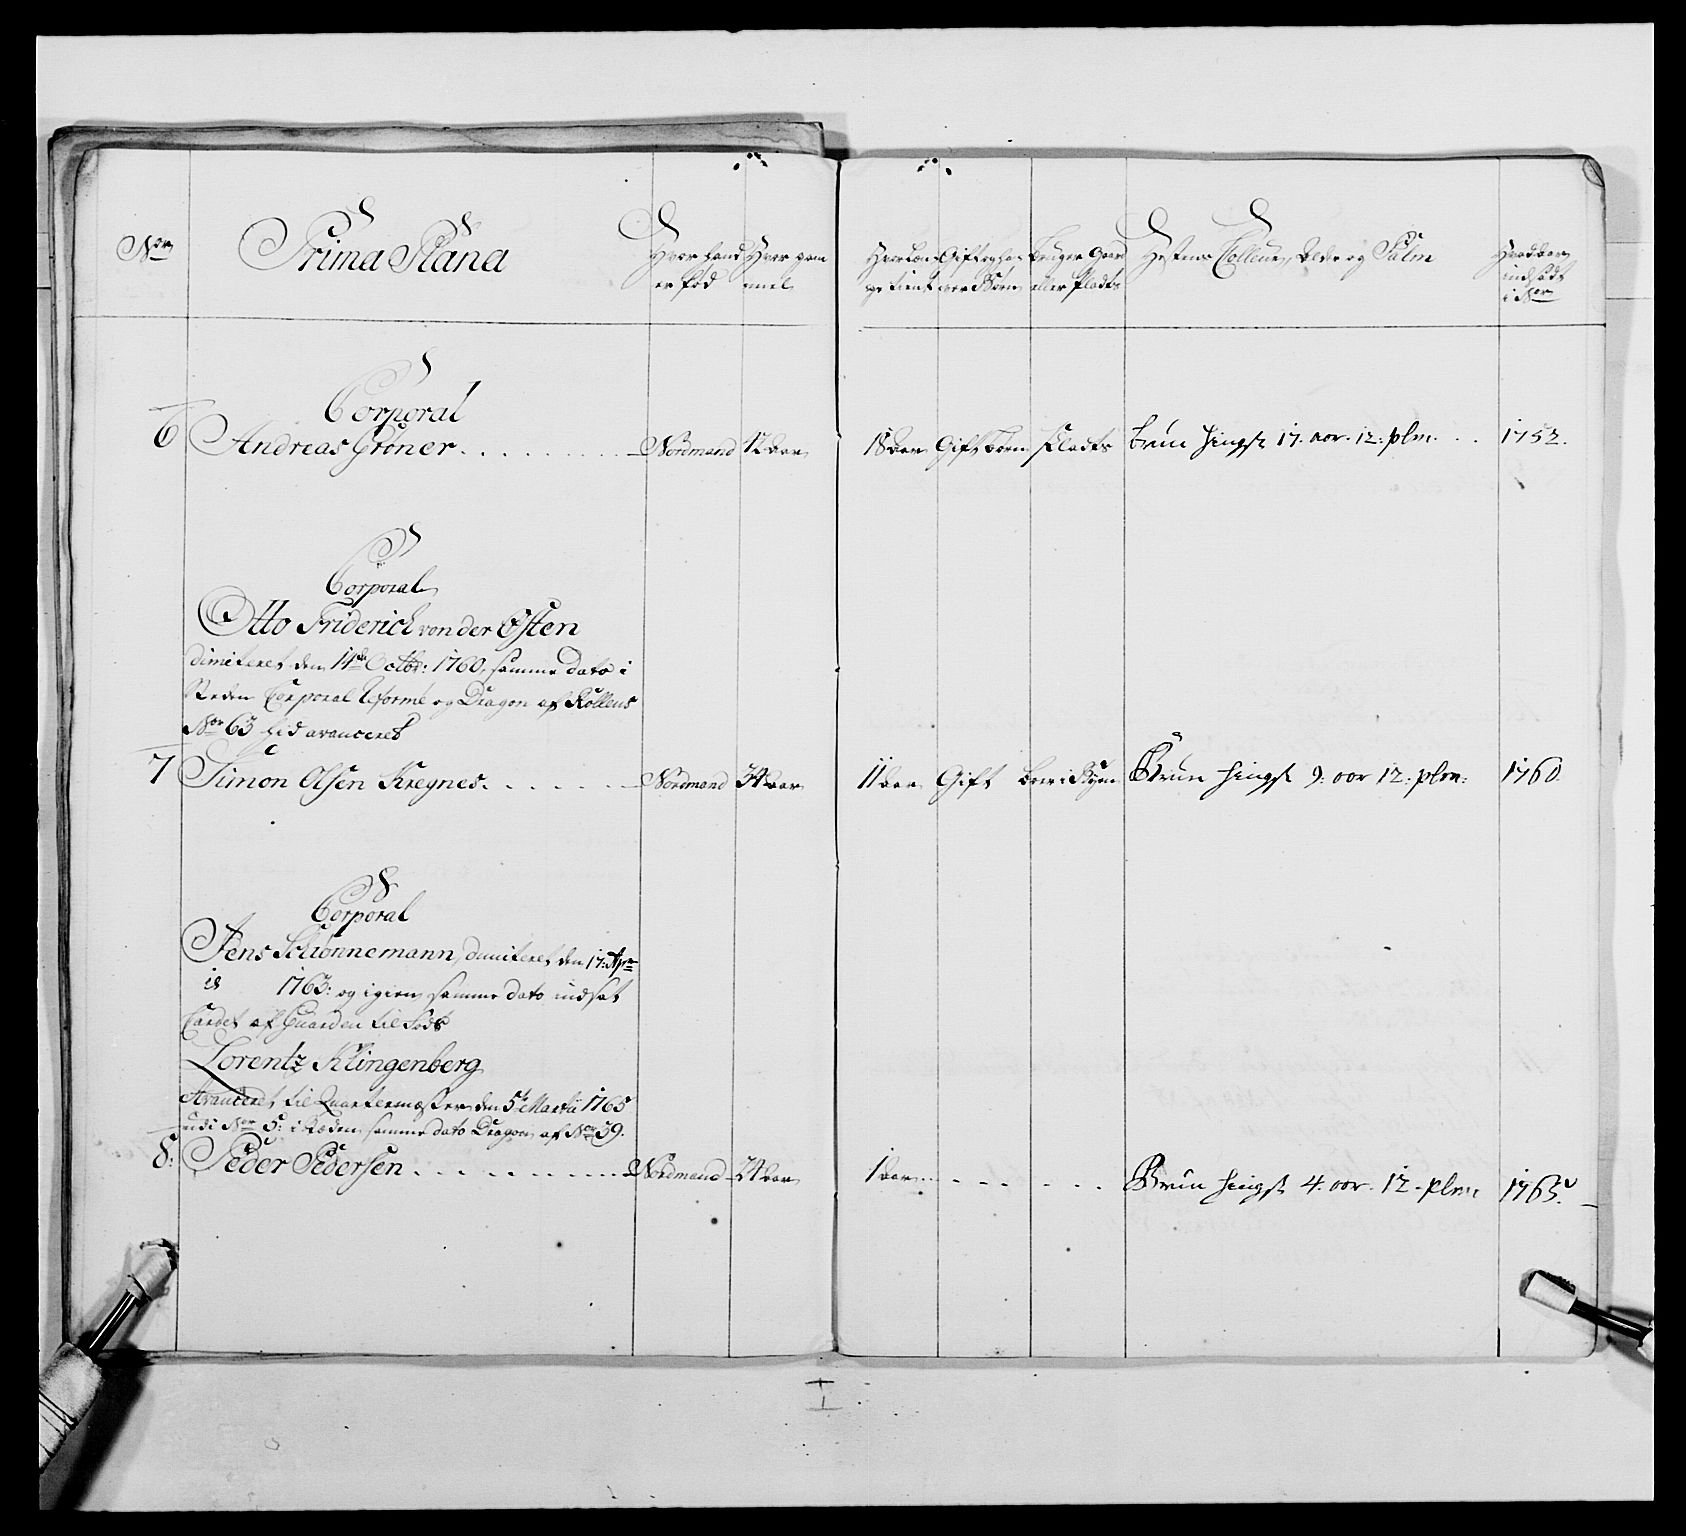 Nor Prima Plana Hvor hand er Fød Hvor gam mel Hvor læn ge tient Gift og ha ver Børn Bruger Gaard eller Pladts Hestens Colleur, Alder og Palm Hvad aar indsadt i Nor
Corporal
6 Andreas Grøner Nordmand 18 aar Gift Børn Pladts brun hingst 17. aar. 12: plm. 1752.
Corporal
Otto Friderich von der Osten
dimiteret den 14de Octbr: 1760, samme dato i
Steden Corporal Reforme og Dragon af Røllens
Nor 63 hid avanceret
7 Simon Olsen Kregnes Nordmand 34 aar 11 aar Gift boer i Byen Brun hingst 9: aar 12: plm: 1760.
Corporal
Jens Schønnemann, dimiteret den 17: Apr
il 1763: og igien samme dato indsat
Cadet af Guarden til Fods
Lorentz Klingenberg
Avanceret til Quartermester den 5te Martii 1765
udi Nor 5: i Stæden samme dato Dragon af Nor 39.
8: Peder Pedersen Nordmand 24 aar 1 aar Brun hingst 4. aar. 12. plm 1765.
I